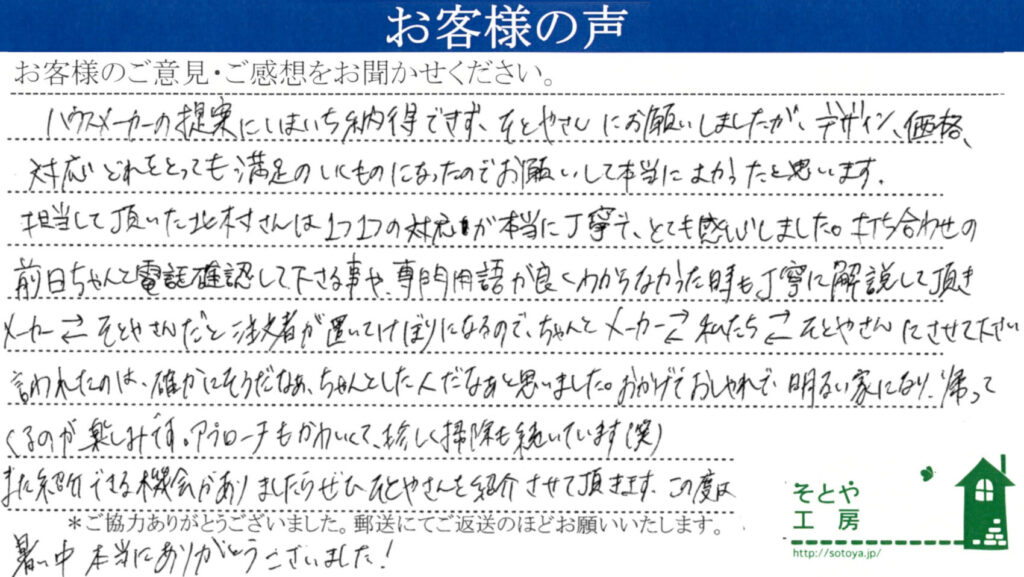 お客様の声
お客様のご意見・ご感想をお聞かせください。
ハウスメーカーの提案にいまいち納得できず、そとやさんにお願いしましたが、デザイン、価格、
対応どれをとっても満足のいくものになったのでお願いして本当によかったと思います。
担当して頂いた北村さんは1つ1つの対応が本当に丁寧で、とても感心しました。打ち合わせの
前日ちゃんと電話確認して下さる事や、専門用語が良くわからなかった時も丁寧に解説して頂き
メーカー⇄そとやさんだと注文者が置いてけぼりになるので、ちゃんとメーカー⇄私たち⇄そとやさんにさせて下さい
言われたのは、確かにそうだなぁ、ちゃんとした人だなぁと思いました。おかげでおしゃれで明るい家になり、帰って
くるのが楽しみです。アプローチもかわいくて、珍しく掃除も続いています(笑)
また紹介できる機会がありましたらぜひそとやさんを紹介させて頂きます。この度は
＊ご協力ありがとうございました。郵送にてご返送のほどお願いいたします。
暑い中本当にありがとうございました!
そとや
工房
http://sotoya.jp/